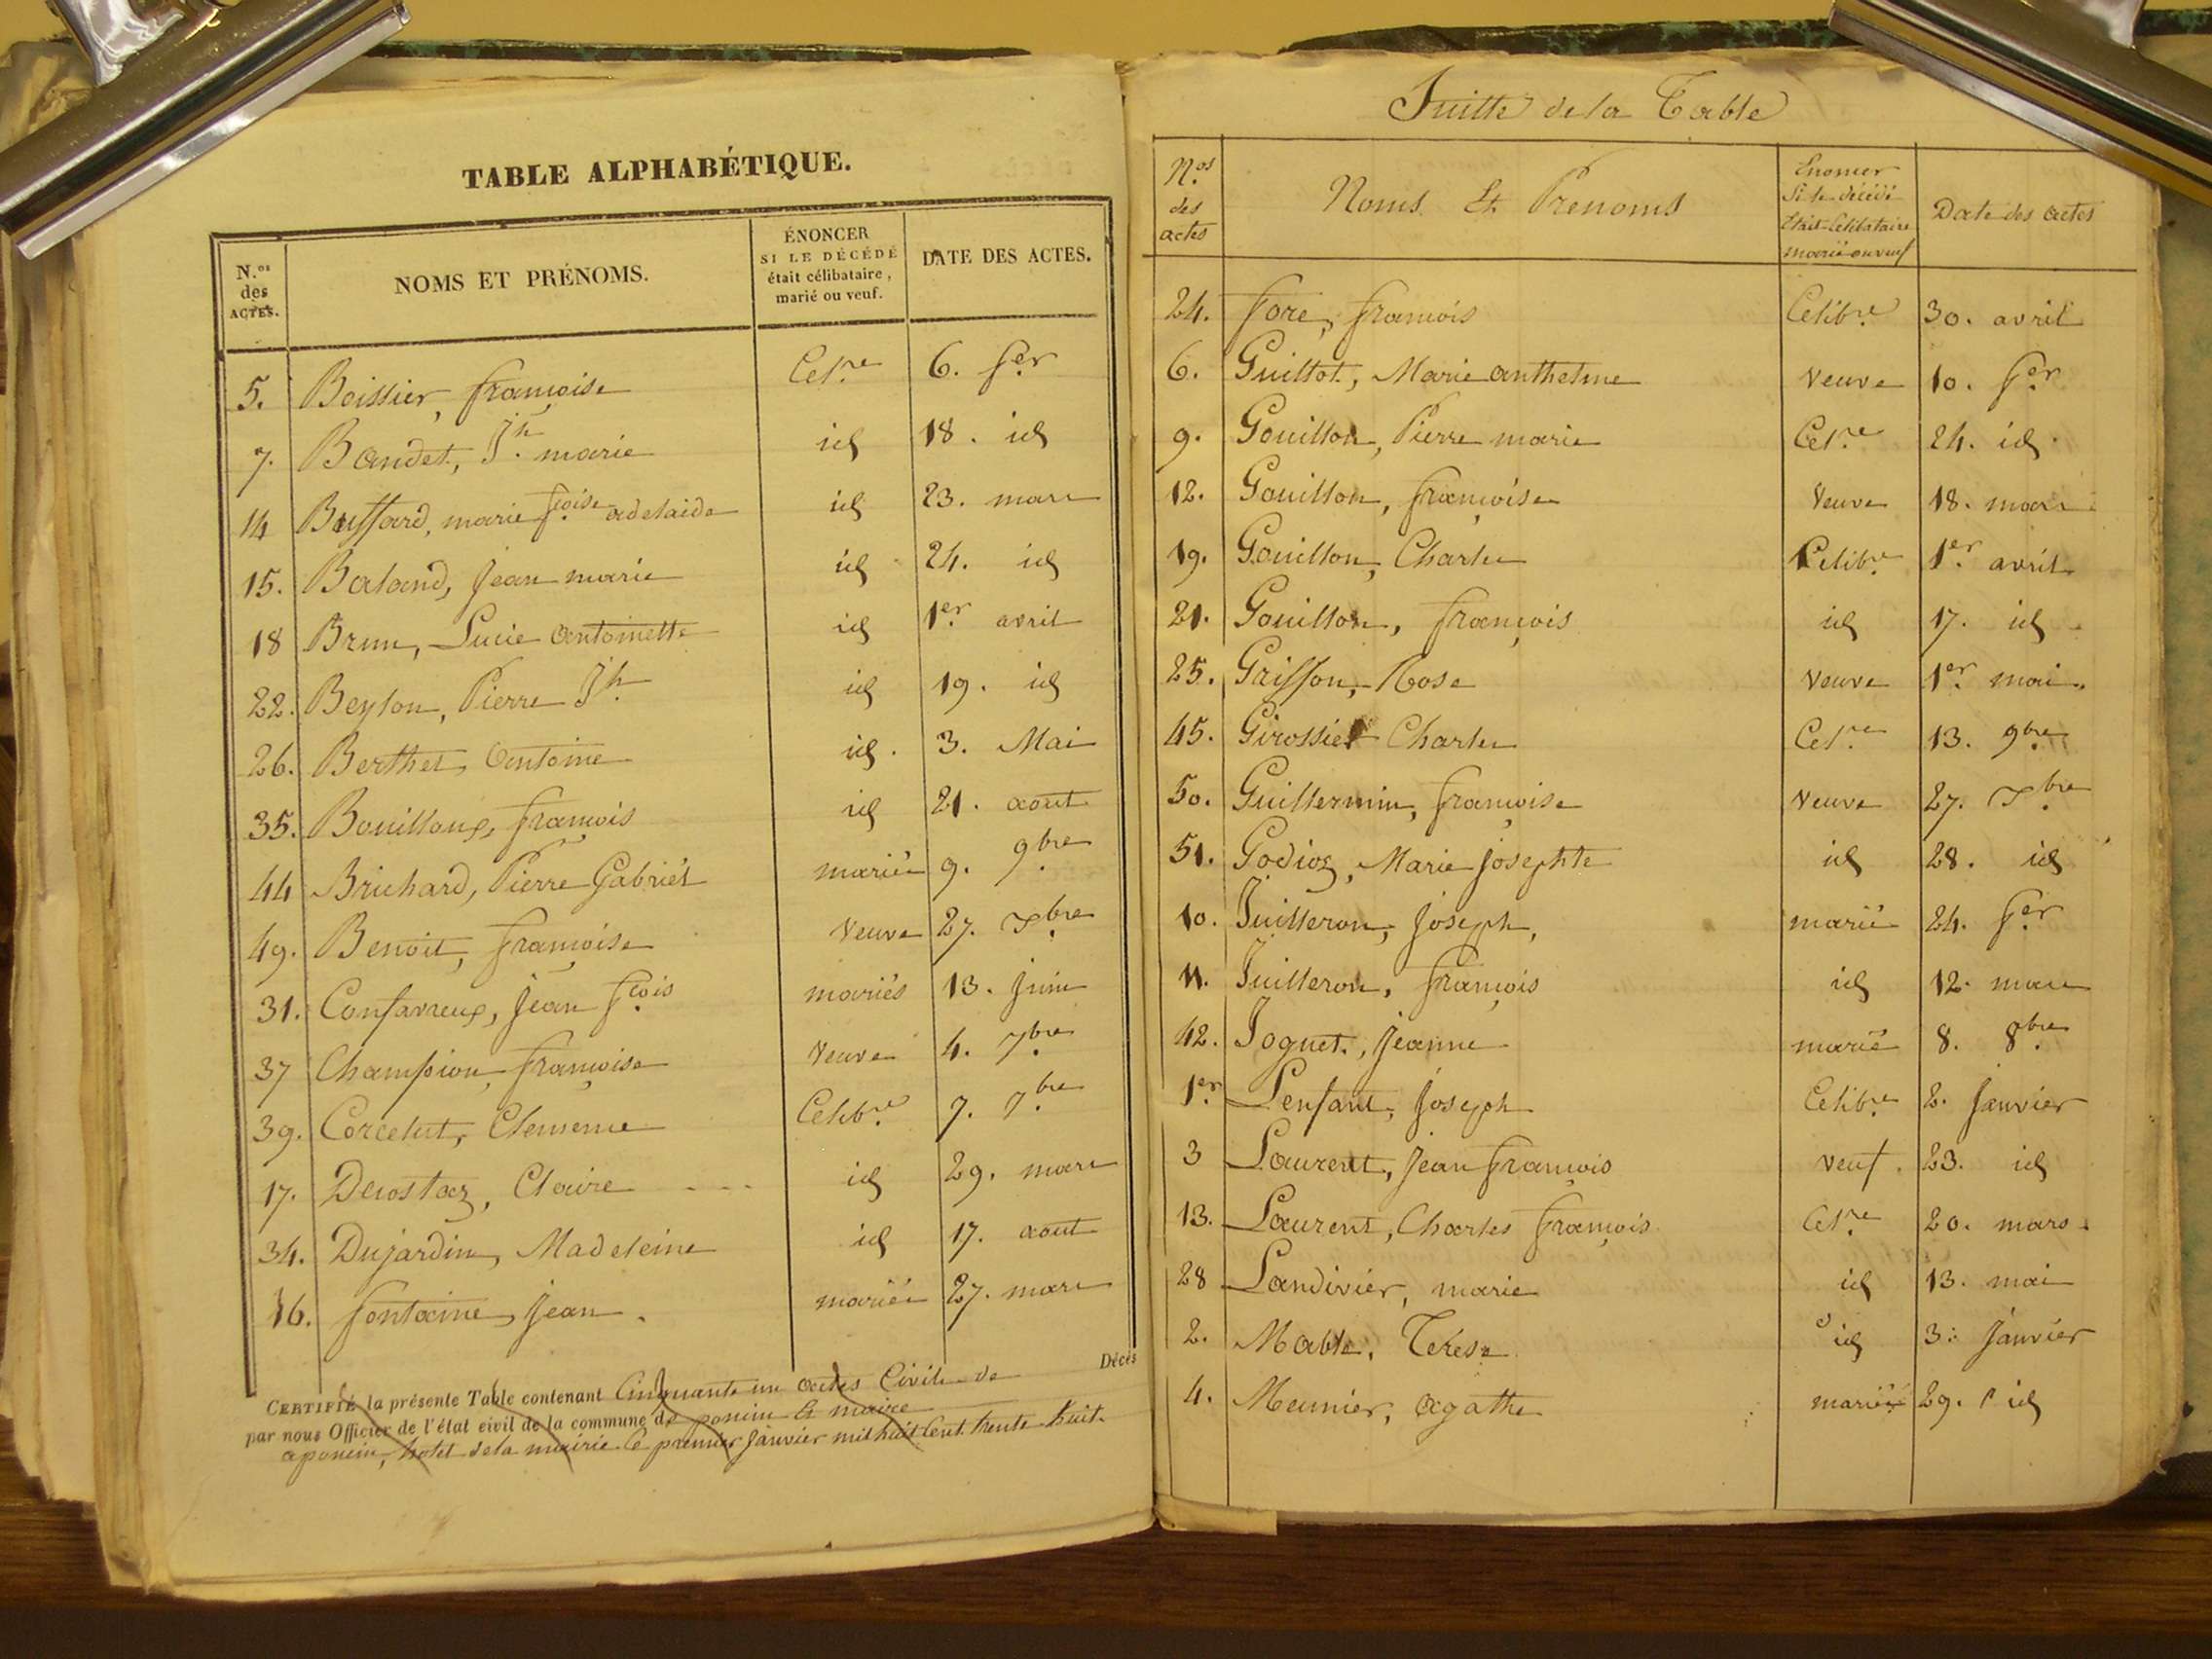 TABLE ALPHABÉTIQUE.
N.os des ACTES.
NOMS ET PRÉNOMS.
ÉNONCER SI LE DÉCÉDÉ était célibataire, marié ou veuf.
DATE DES ACTES.
5. Boissier, françoise Cel.re 6. f.er
7. Baudet, J.h marie id 18. id
14 Buffard, marie f.coise adelaide id 23. mars
15. Baland, Jean marie id 24. id
18 Brun, Lucie antoinette id 1er avril
22. Beylon, Pierre J.h id 19. id
26. Berthet, antoine id. 3. Mai
35. Bouilloux, françois id 21. aout
44 Brichard, Pierre Gabriél marié 9. 9bre
49. Benoit, françoise Veuve 27. Xbre
31. Confavreux, Jean f.cois mariés 13. Juin
37 Champion, françoise Veuve 4. 7bre
39. Corcelut, Clemence Celib.re 7. 7bre
17. Decostaz, Claire id 29. mars
34. Dujardin, Madeleine id 17. aout
16. fontaine, Jean. marié 27. mars
CERTIFIÉ la présente Table contenant Cinquante un actes Civils de Décès
par nous Officier de l'état civil de la commune de poncin & maire
a poncin, hotel de la mairie le premier Janvier mil huit Cent trente huit.
Suitte de la Table
N.os des actes
Noms Et Prenoms
Enoncer Si le décédé Etait Celibataire marié ou veuf
Date des actes
24. fore, françois Celib.re 30. avril
6. Guillot, Marie anthelme veuve 10. f.er
9. Gouillon, Pierre marie Cel.re 24. id.
12. Gouillon, françoise Veuve 18. mars
19. Gouillon, Charles Celib.re 1er avril
21. Gouillon, françois id 17. id
25. Griffon, Rose veuve 1er mai.
45. Girossier Charles Cel.re 13. 9bre
50. Guillermin, françoise veuve 27. Xbre
51. Godioz, Marie Josephte id 28. id
10. Juilleron, Joseph, marié 24. f.er
11. Juilleron, françois id 12. mars
42. Joguet, Jeanne marié 8. 8bre
1er Lenfant, Joseph Celib.re 2. Janvier
3 Laurent, Jean françois veuf. 23. id
13. Laurent, Charles françois Cel.re 20. mars.
28 Landivier, marie id 13. mai
2. Mable, Térese id 3. Janvier
4. Meunier, agathe mariée 29. id